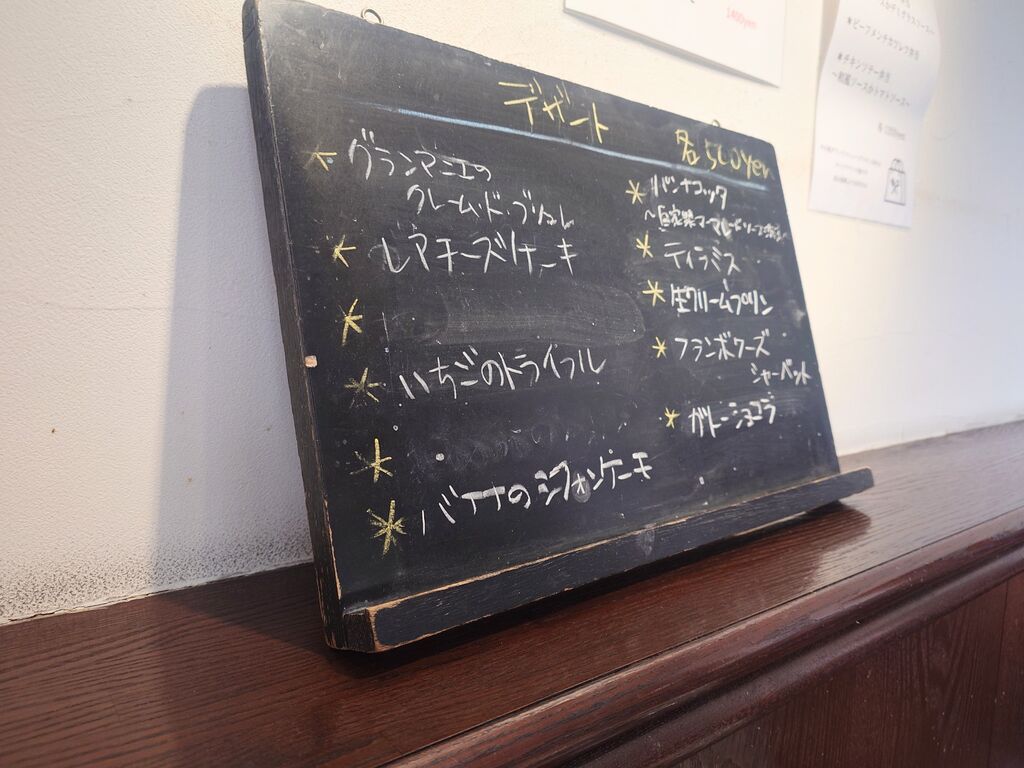 デザート
各500yen
* グランマニエの
クレーム・ド・ブリュレ
* レアチーズケーキ
*
* いちごのトライフル
*
* バナナのシフォンケーキ
* パンナコッタ
〜自家製マーマレードソース
* ティラミス
* 生クリームプリン
* フランボワーズ
シャーベット
* ガトーショコラ
1400yen
*ビーフメンチカツレツ弁当
*チキンソテー弁当